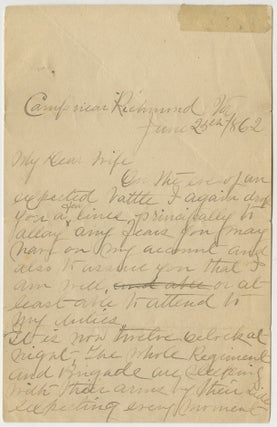 Camp near Richmond Va
June 25th 1862
My Dear Wife
On the eve of an
expected battle I again drop
you a few lines, principally to
allay any fears you may
have on my account and
also to assure you that I
am well, and able or at
least able to attend to
my duties
It is now twelve oclock at
night. The whole Regiment
and Brigade are sleeping
with their arms by their side
expecting every moment